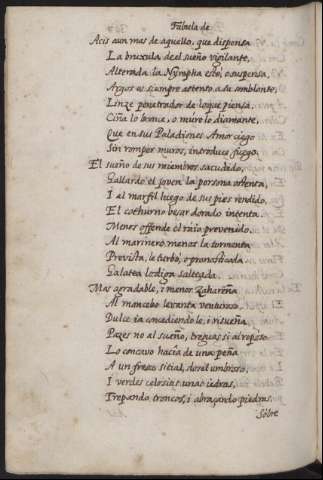 Fabula de
Acis aun mas de aquello, que dispensa
La bruxula de el sueño vigilante,
Alterada la Nympha estè, o suspensa,
Argos es siempre attento a su semblante,
Linze penetrador de lo que piensa,
Ciña lo bronce, o muro lo diamante,
Que en sus Paladiones Amor ciego
Sin romper muros, introduce fuego.
El sueño de sus miembros sacudido,
Gallardo el joven la persona ostenta,
I al marfil luego de sus pies rendido,
El cothurno besar dorado intenta.
Menos offende el raio prevenido
Al marinero, menos la tormenta
Prevista le turbò, o pronosticada
Galatea lo diga salteada.
Mas agradable, i menos zahareña
Al mancebo levanta venturoso,
Dulce ia concediendole, i risueña
Pazes no al sueño, treguas si al reposo.
Lo concavo hacia de una peña
A un fresco sitial, dosel umbroso,
I verdes celosias unas iedras,
Trepando troncos, i abraçando piedras.
Sobre